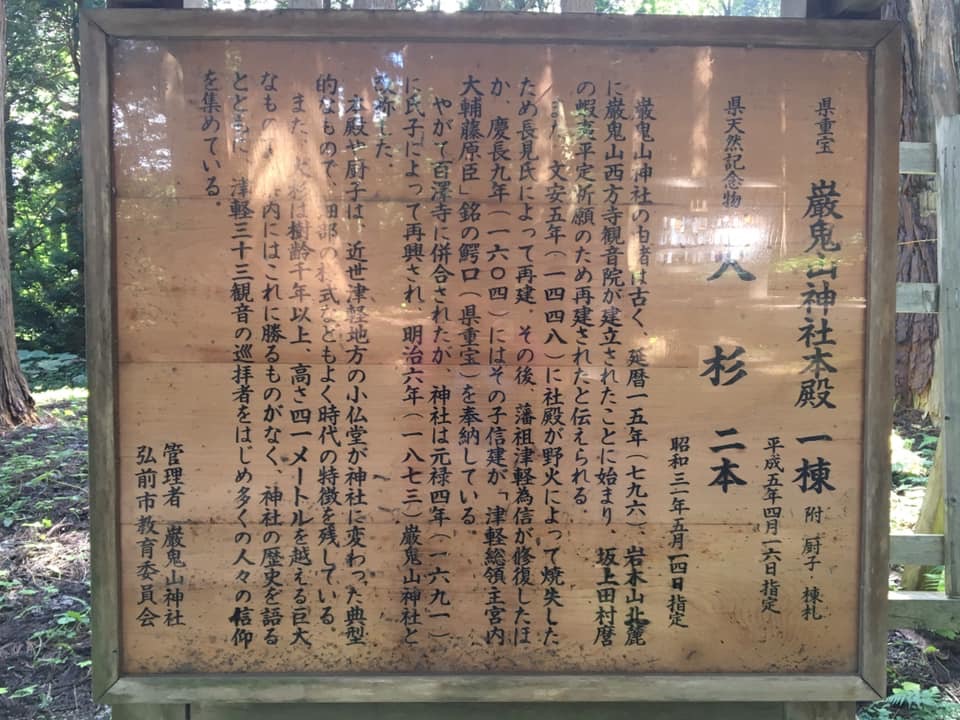 県重宝 巌鬼山神社本殿 一棟 附 厨子・棟札
平成五年四月一六日指定
県天然記念物 大杉 二本
昭和三一年五月一四日指定
巌鬼山神社の由緒は古く、延暦一五年(七九六)、岩木山北麓
に巌鬼山西方寺観音院が建立されたことに始まり、坂上田村麿
の蝦夷平定祈願のため再建されたと伝えられる。
また、文安五年(一四四八)に社殿が野火によって焼失した
ため長見氏によって再建。その後、藩祖津軽為信が修復したほ
か、慶長九年(一六〇四)にはその子信建が「津軽総領主宮内
大輔藤原臣」銘の鰐口(県重宝)を奉納している。
やがて百澤寺に併合されたが、神社は元禄四年(一六九一)
に氏子によって再興され、明治六年(一八七三)巌鬼山神社と
改称した。
本殿や厨子は、近世津軽地方の小仏堂が神社に変わった典型
的なもので、細部の様式などもよく時代の特徴を残している。
また、大杉は樹齢千年以上、高さ四一メートルを越える巨大
なもの 内にはこれに勝るものがなく、神社の歴史を語る
とともに、津軽三十三観音の巡拝者をはじめ多くの人々の信仰
を集めている。
管理者 巌鬼山神社
弘前市教育委員会